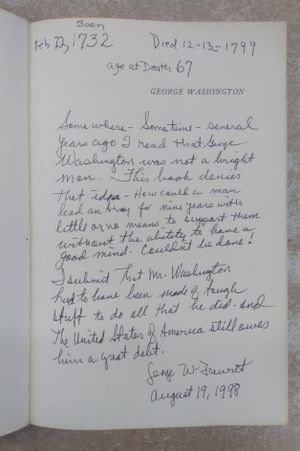 Born
Feb 22, 1732 Died 12-13-1799
age at Death 67
GEORGE WASHINGTON
Somewhere - Sometime - several
years ago I read that George
Washington was not a bright
man. This book denies
that idea - How could a man
lead an Army for nine years with
little or no means to support them
without the ability to have a
good mind. Couldn't be done!
I submit that Mr. Washington
had to have been made of tough
stuff to do all that he did. And
The United States of America still owes
him a great debt.
George W.
August 19, 1998